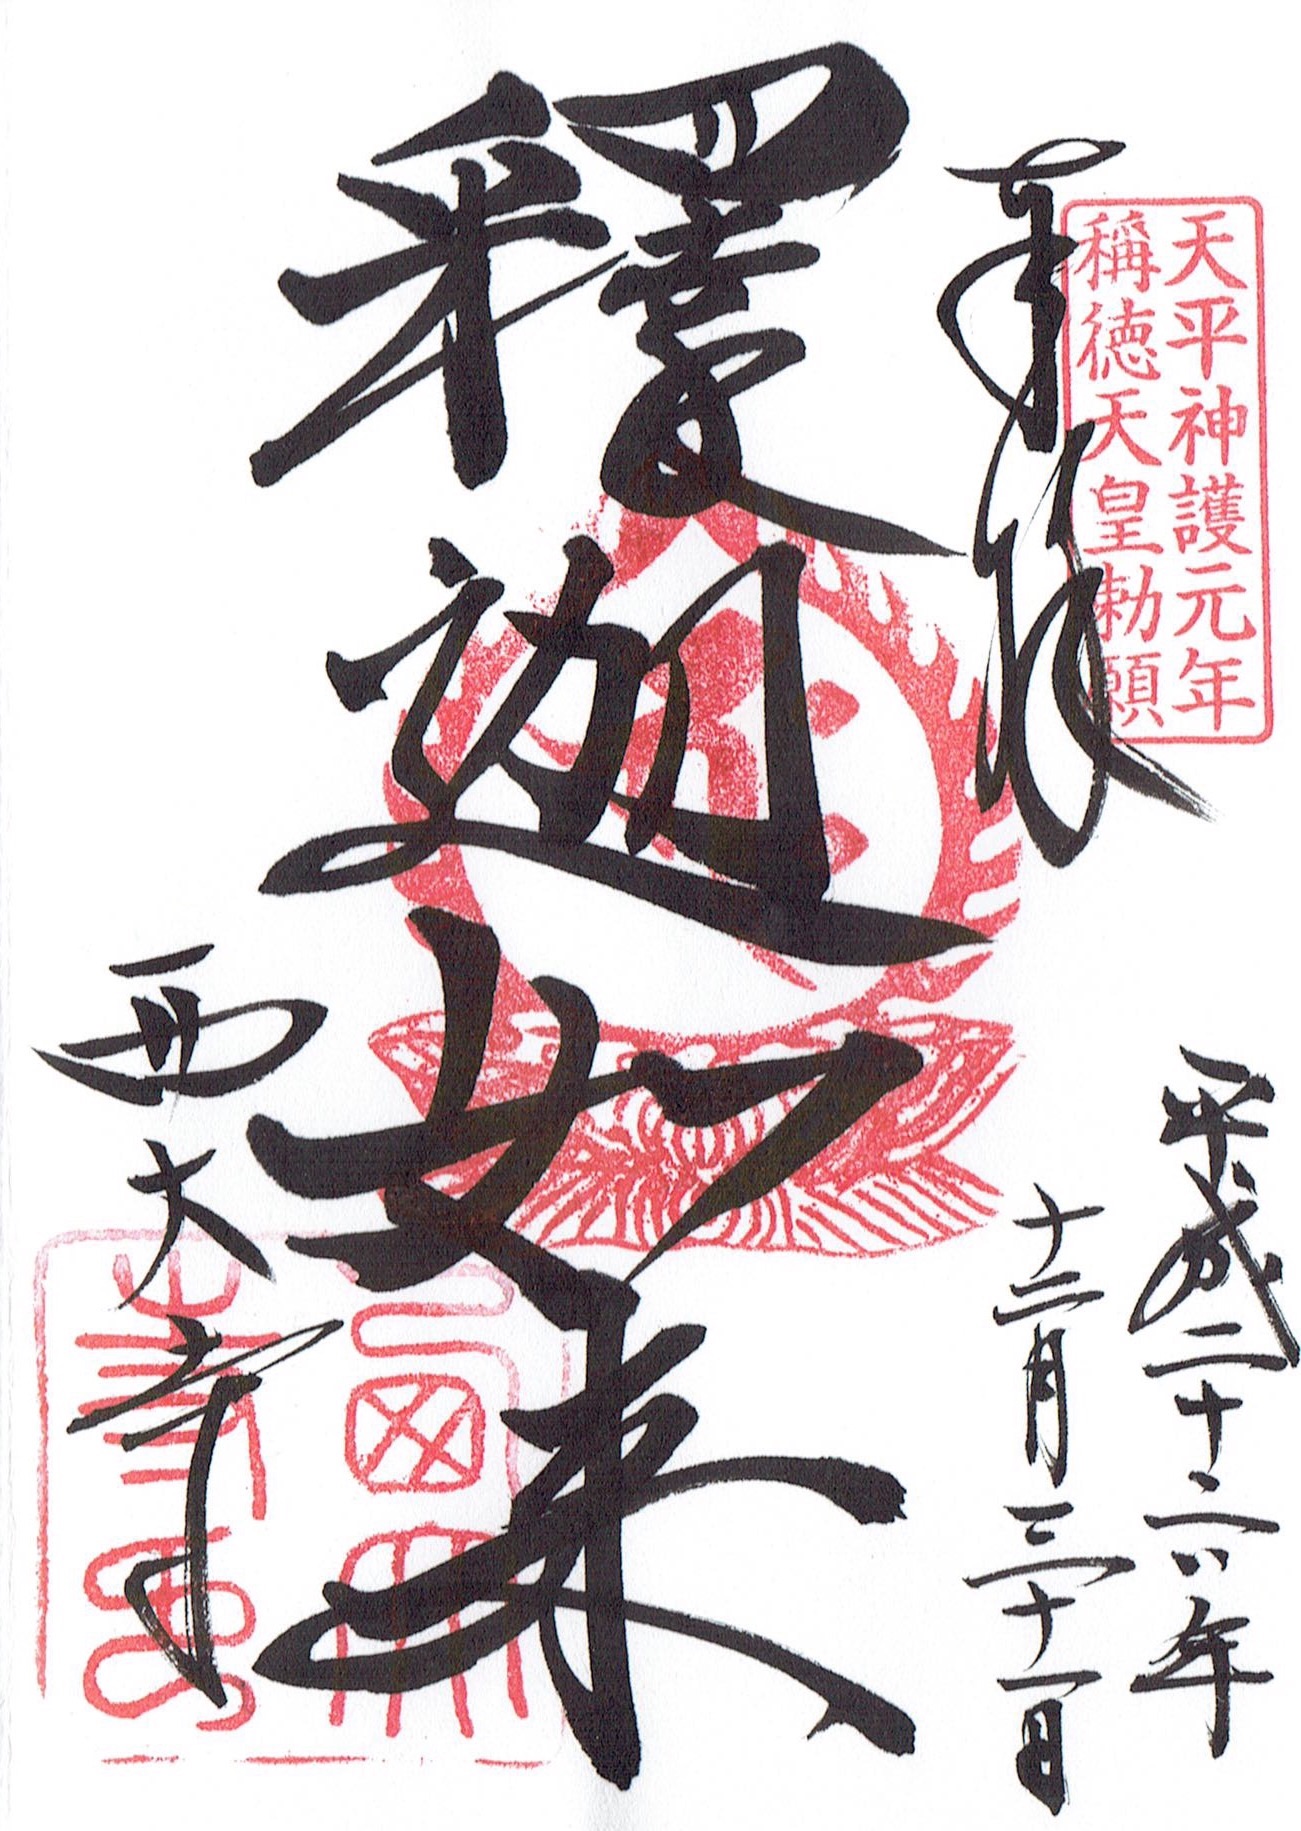 天平神護元年
稱徳天皇勅願
奉拝
平成二十六年
十二月三十一日
釋迦如来
西大寺
西大
寺印